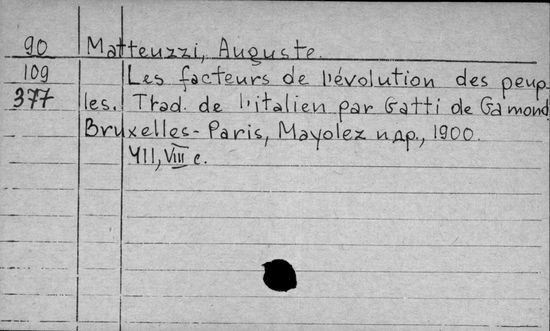 90 Matteuzzi, Auguste.
109 Les facteurs de l'évolution des peup-
377 les. Trad. de l'italien par Gatti de Gamond
Bruxelles-Paris, Mayolez и др., 1900.
411, VIII с.